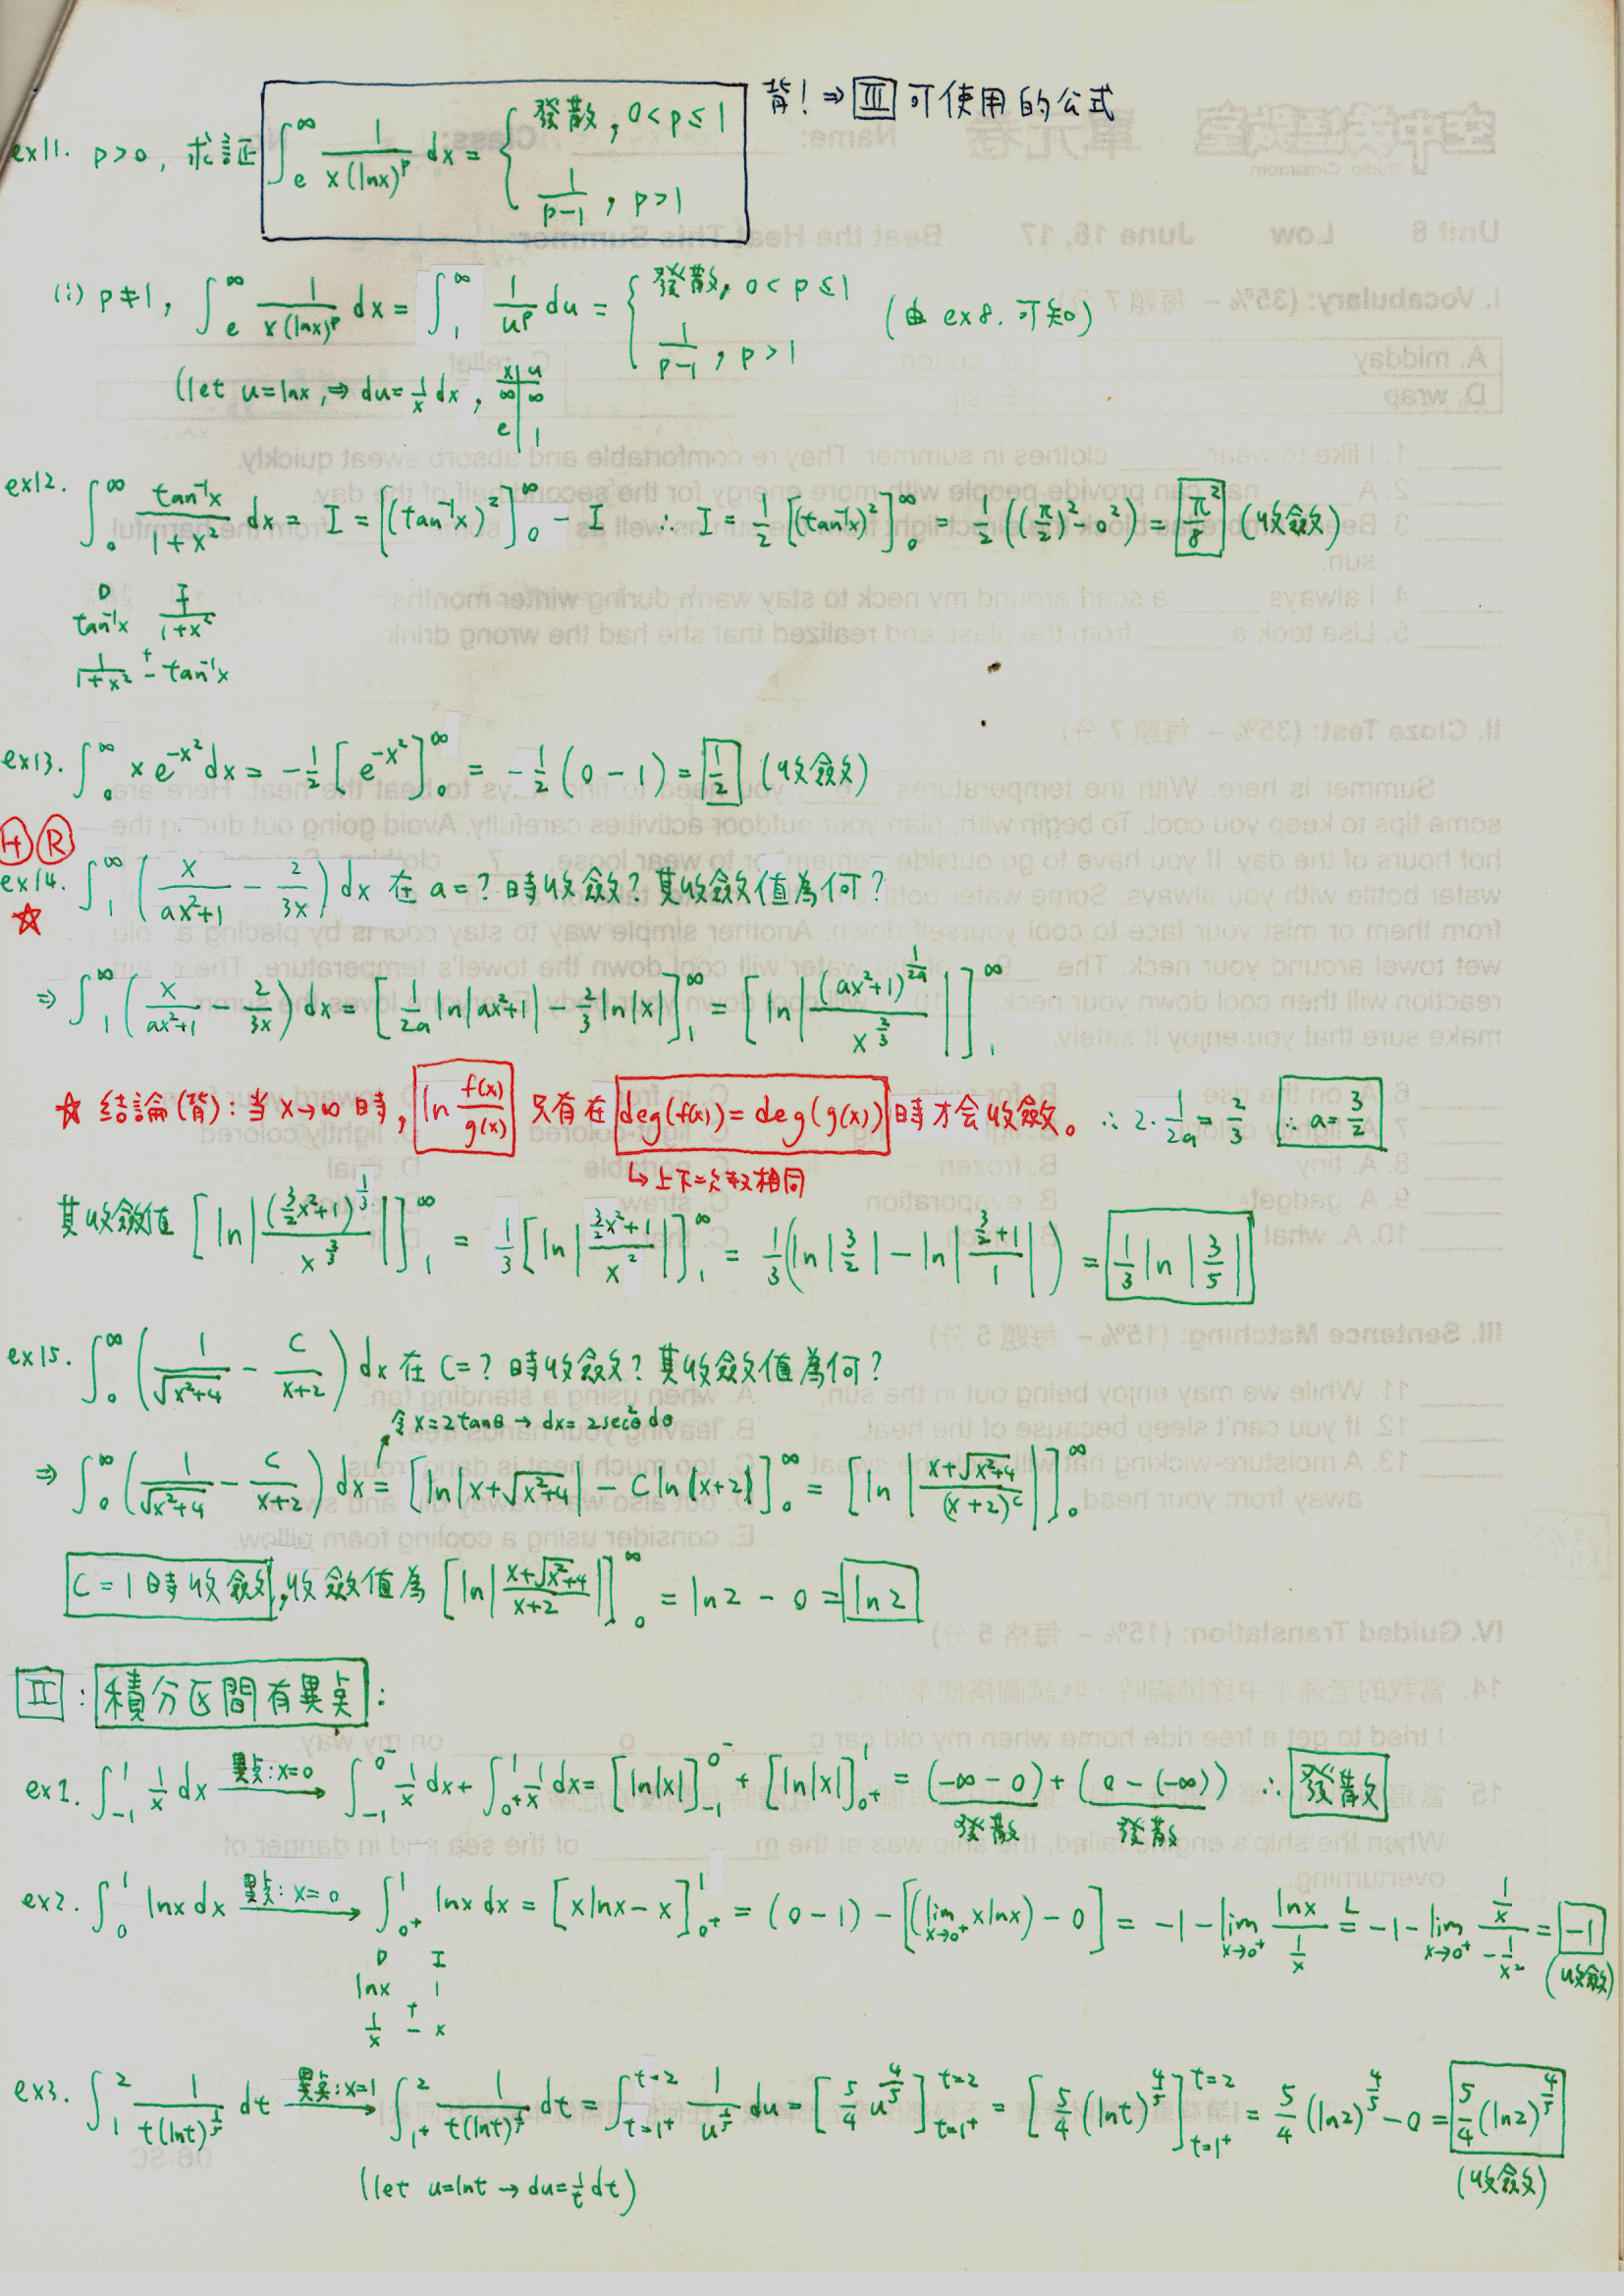 背! ⇒ Ⅲ 可使用的公式
ex11. p>0, 求証 ∫_e^∞ 1/(x(lnx)^p) dx = { 發散, 0<p≤1 ; 1/(p-1), p>1
(i) p≠1, ∫_e^∞ 1/(x(lnx)^p) dx = ∫_1^∞ 1/u^p du = { 發散, 0<p≤1 ; 1/(p-1), p>1 (由 ex8. 可知)
(let u=lnx, ⇒ du=1/x dx, x|u ∞|∞ e|1
ex12. ∫_0^∞ tan⁻¹x/(1+x²) dx = I = [(tan⁻¹x)²]_0^∞ - I ∴ I = 1/2 [(tan⁻¹x)²]_0^∞ = 1/2 ((π/2)² - 0²) = π²/8 (收斂)
D I
tan⁻¹x 1/(1+x²)
1/(1+x²) +- tan⁻¹x
ex13. ∫_0^∞ x e^(-x²) dx = -1/2 [e^(-x²)]_0^∞ = -1/2 (0-1) = 1/2 (收斂)
Ⓗ Ⓡ
ex14. ∫_1^∞ (x/(ax²+1) - 2/(3x)) dx 在 a=? 時收斂? 其收斂值為何?
☆
⇒ ∫_1^∞ (x/(ax²+1) - 2/(3x)) dx = [1/(2a) ln|ax²+1| - 2/3 ln|x|]_1^∞ = [ln|(ax²+1)^(1/(2a))/x^(2/3)|]_1^∞
☆ 結論(背): 當 x→∞ 時, ln f(x)/g(x) 只有在 deg(f(x)) = deg(g(x)) 時才会收斂。 ∴ 2·1/(2a) = 2/3 ∴ a=3/2
↳ 上下次数相同
其收斂值 [ln|(3/2 x²+1)^(1/3)/x^(2/3)|]_1^∞ = 1/3 [ln|(3/2 x²+1)/x²|]_1^∞ = 1/3 (ln|3/2| - ln|(3/2+1)/1|) = 1/3 ln|3/5|
ex15. ∫_0^∞ (1/√(x²+4) - C/(x+2)) dx 在 C=? 時收斂? 其收斂值為何?
令 x=2tanθ → dx=2sec²θ dθ
⇒ ∫_0^∞ (1/√(x²+4) - C/(x+2)) dx = [ln|x+√(x²+4)| - C ln|x+2|]_0^∞ = [ln|(x+√(x²+4))/(x+2)^C|]_0^∞
C=1時收斂, 收斂值為 [ln|(x+√(x²+4))/(x+2)|]_0^∞ = ln2 - 0 = ln2
Ⅱ : 積分区間有異点 :
ex1. ∫_-1^1 1/x dx 異点: x=0 → ∫_-1^0⁻ 1/x dx + ∫_0⁺^1 1/x dx = [ln|x|]_-1^0⁻ + [ln|x|]_0⁺^1 = (-∞-0) + (0-(-∞)) ∴ 發散
發散 發散
ex2. ∫_0^1 lnx dx 異点: x=0 → ∫_0⁺^1 lnx dx = [xlnx-x]_0⁺^1 = (0-1) - [(lim_{x→0⁺} xlnx) - 0] = -1 - lim_{x→0⁺} lnx/(1/x) =^L -1 - lim_{x→0⁺} (1/x)/(-1/x²) = -1
(收斂)
D I
lnx 1
1/x +- x
ex3. ∫_1^2 1/(t(lnt)^(1/5)) dt 異点: x=1 → ∫_1⁺^2 1/(t(lnt)^(1/5)) dt = ∫_{t=1⁺}^{t=2} 1/u^(1/5) du = [5/4 u^(4/5)]_{t=1⁺}^{t=2} = [5/4 (lnt)^(4/5)]_{t=1⁺}^{t=2} = 5/4 (ln2)^(4/5) - 0 = 5/4 (ln2)^(4/5)
(let u=lnt → du=1/t dt)
(收斂)